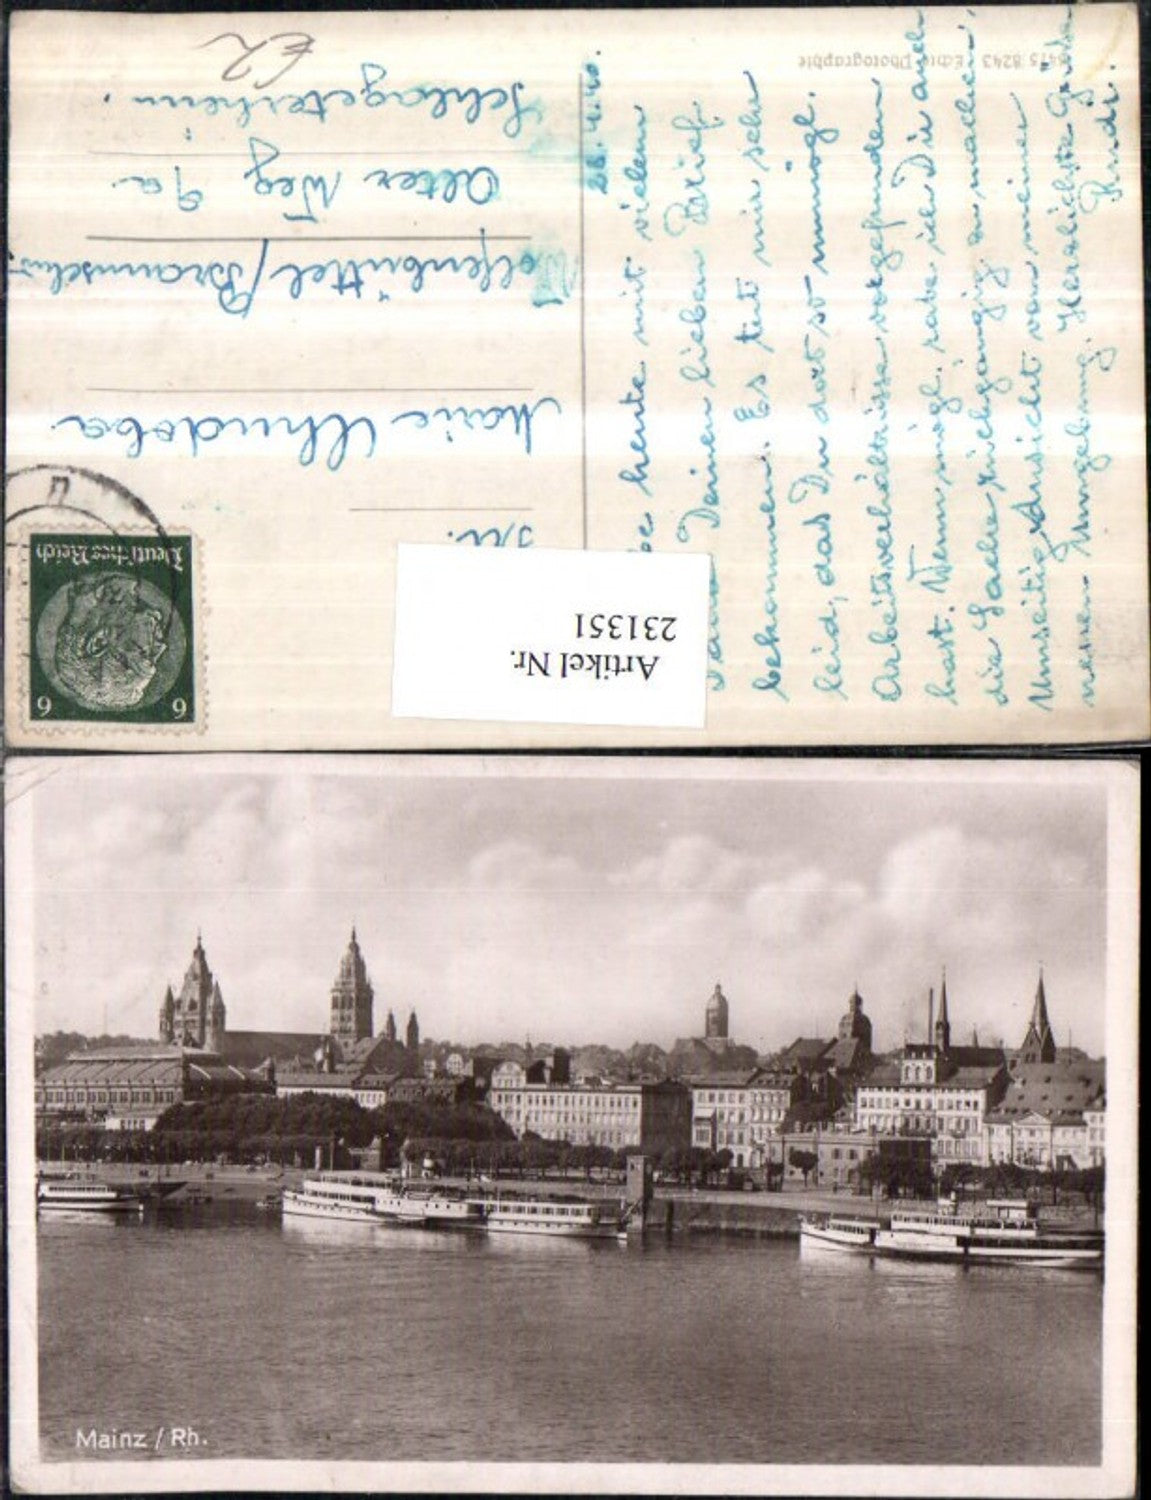 6415 8243 Echte Photographie
26.4.40.
habe heute mit vielem
Dank Deinen lieben Brief
bekommen. Es tut mir sehr
leid, das Du dort so unmögl.
Arbeitsverhältnisse vorgefunden
hast. Wenn mögl. rate ich Dir auch
die Sache rückgängig zu machen.
Umseitig Ansicht von meiner
neuen Umgebung. Herzlichste Grüße
Rudi.
Deutsches Reich
6 6
Frl.
Marie
Wolfenbüttel/Braunschw.
Alter Weg 9a
Schlageterheim.
€2
Artikel Nr.
231351
Mainz / Rh.